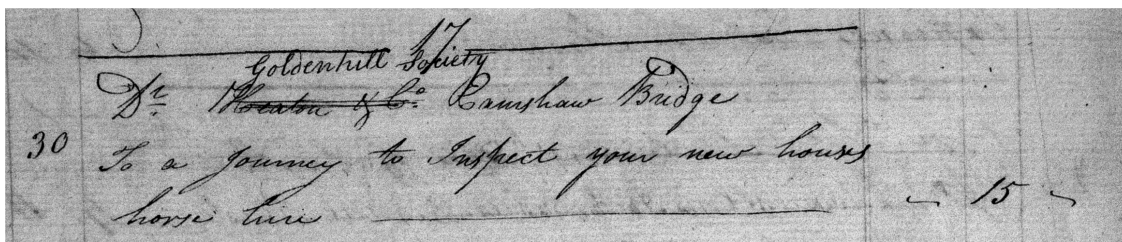 17
Goldenhill Society
Dr. Heaton & Co. Camshaw Bridge
30 To a Journey to Inspect your new houses
horse hire - 15 -